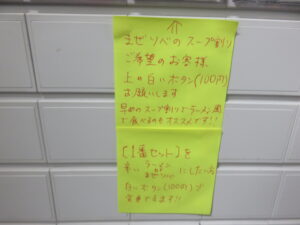 まぜソバのスープ割り
ご希望のお客様
上の白いボタン(100円)
お願いします
早めのスープ割りでラーメン風
で食べるのもオススメです!!
[1番セット]を
辛い ラーメン
まぜソバ にしたい方
白いボタン(100円)で
変更できます!!